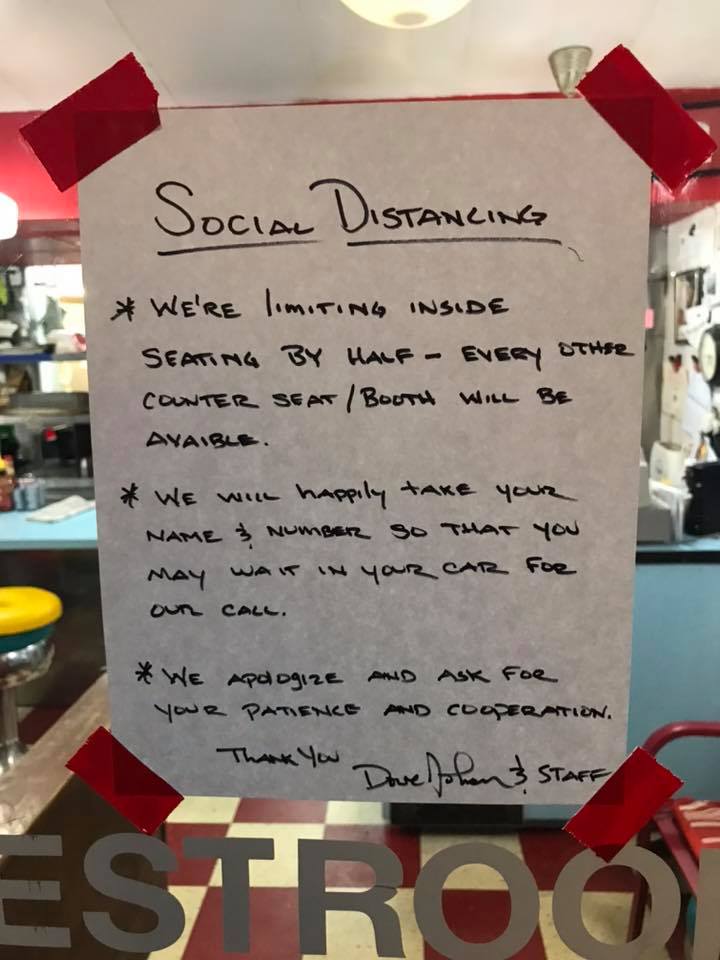 SOCIAL DISTANCING
* WE'RE lIMITING INSIDE
SEATING BY HALF - EVERY OTHER
COUNTER SEAT/BOOTH WILL BE
AVAIBLE.
* WE WILL happily take YOUR
NAME & NUMBER SO THAT YOU
MAY WAIT IN YOUR CAR FOR
OUR CALL.
* WE APOlOgIZE AND ASK FOR
YOUR PATIENCE AND COOPERATION.
THANK YOU
Dave & STAFF
ESTROO